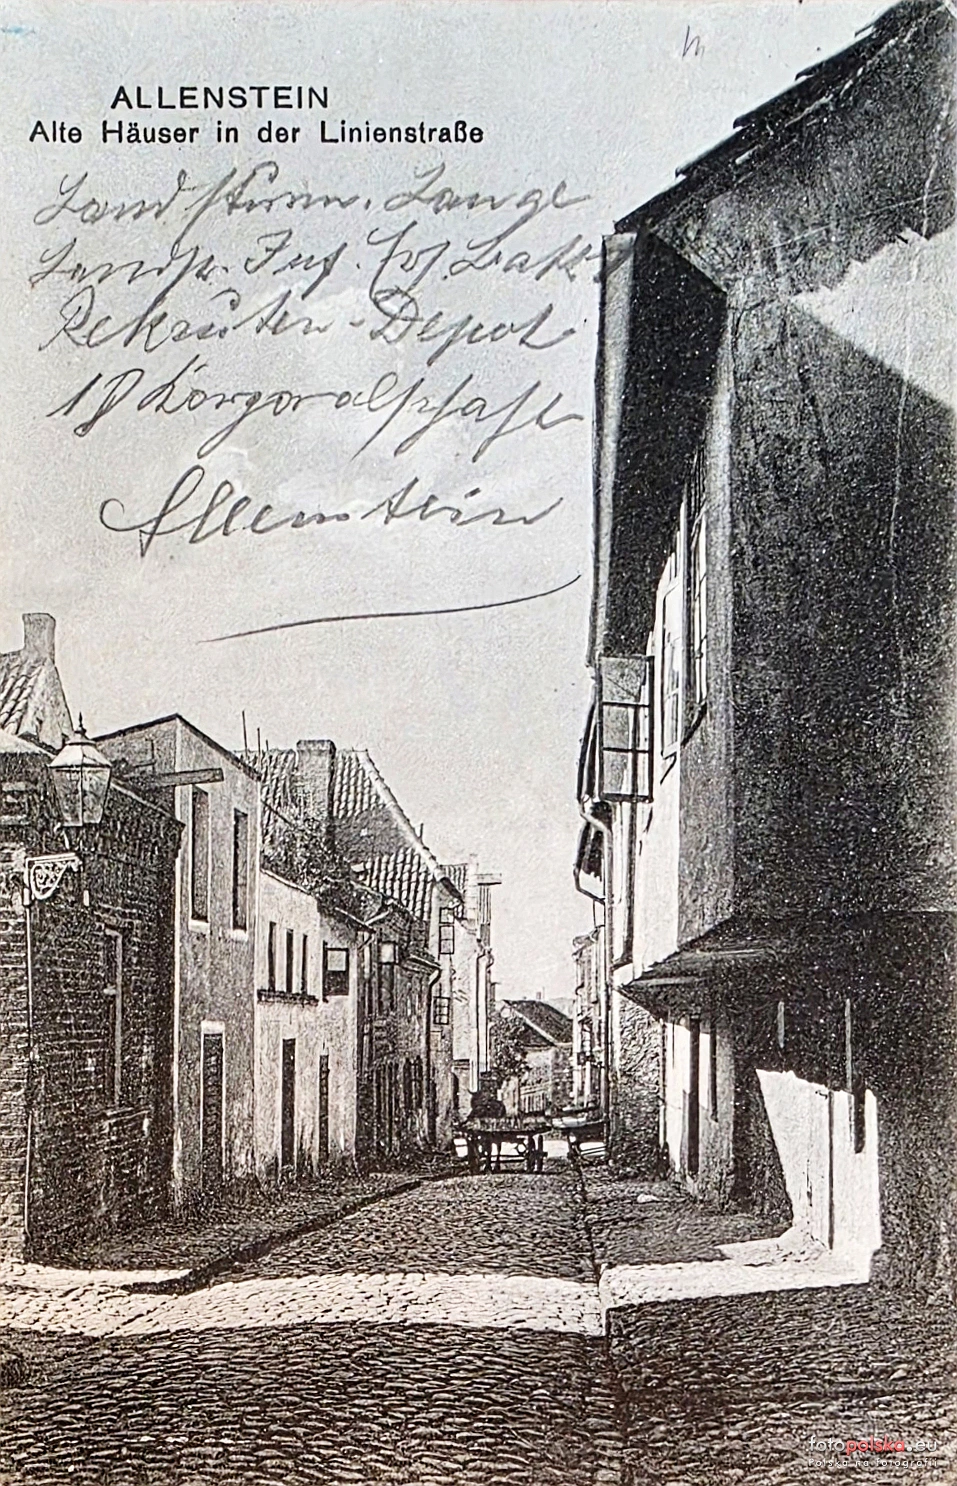 ALLENSTEIN
Alte Häuser in der Linienstraße
Landsturm. Lange
Landst. Inf. Ers. Batl.
Rekruten-Depot
18 Korporalschaft
Allenstein
fotopolska.eu
Polska na fotografii